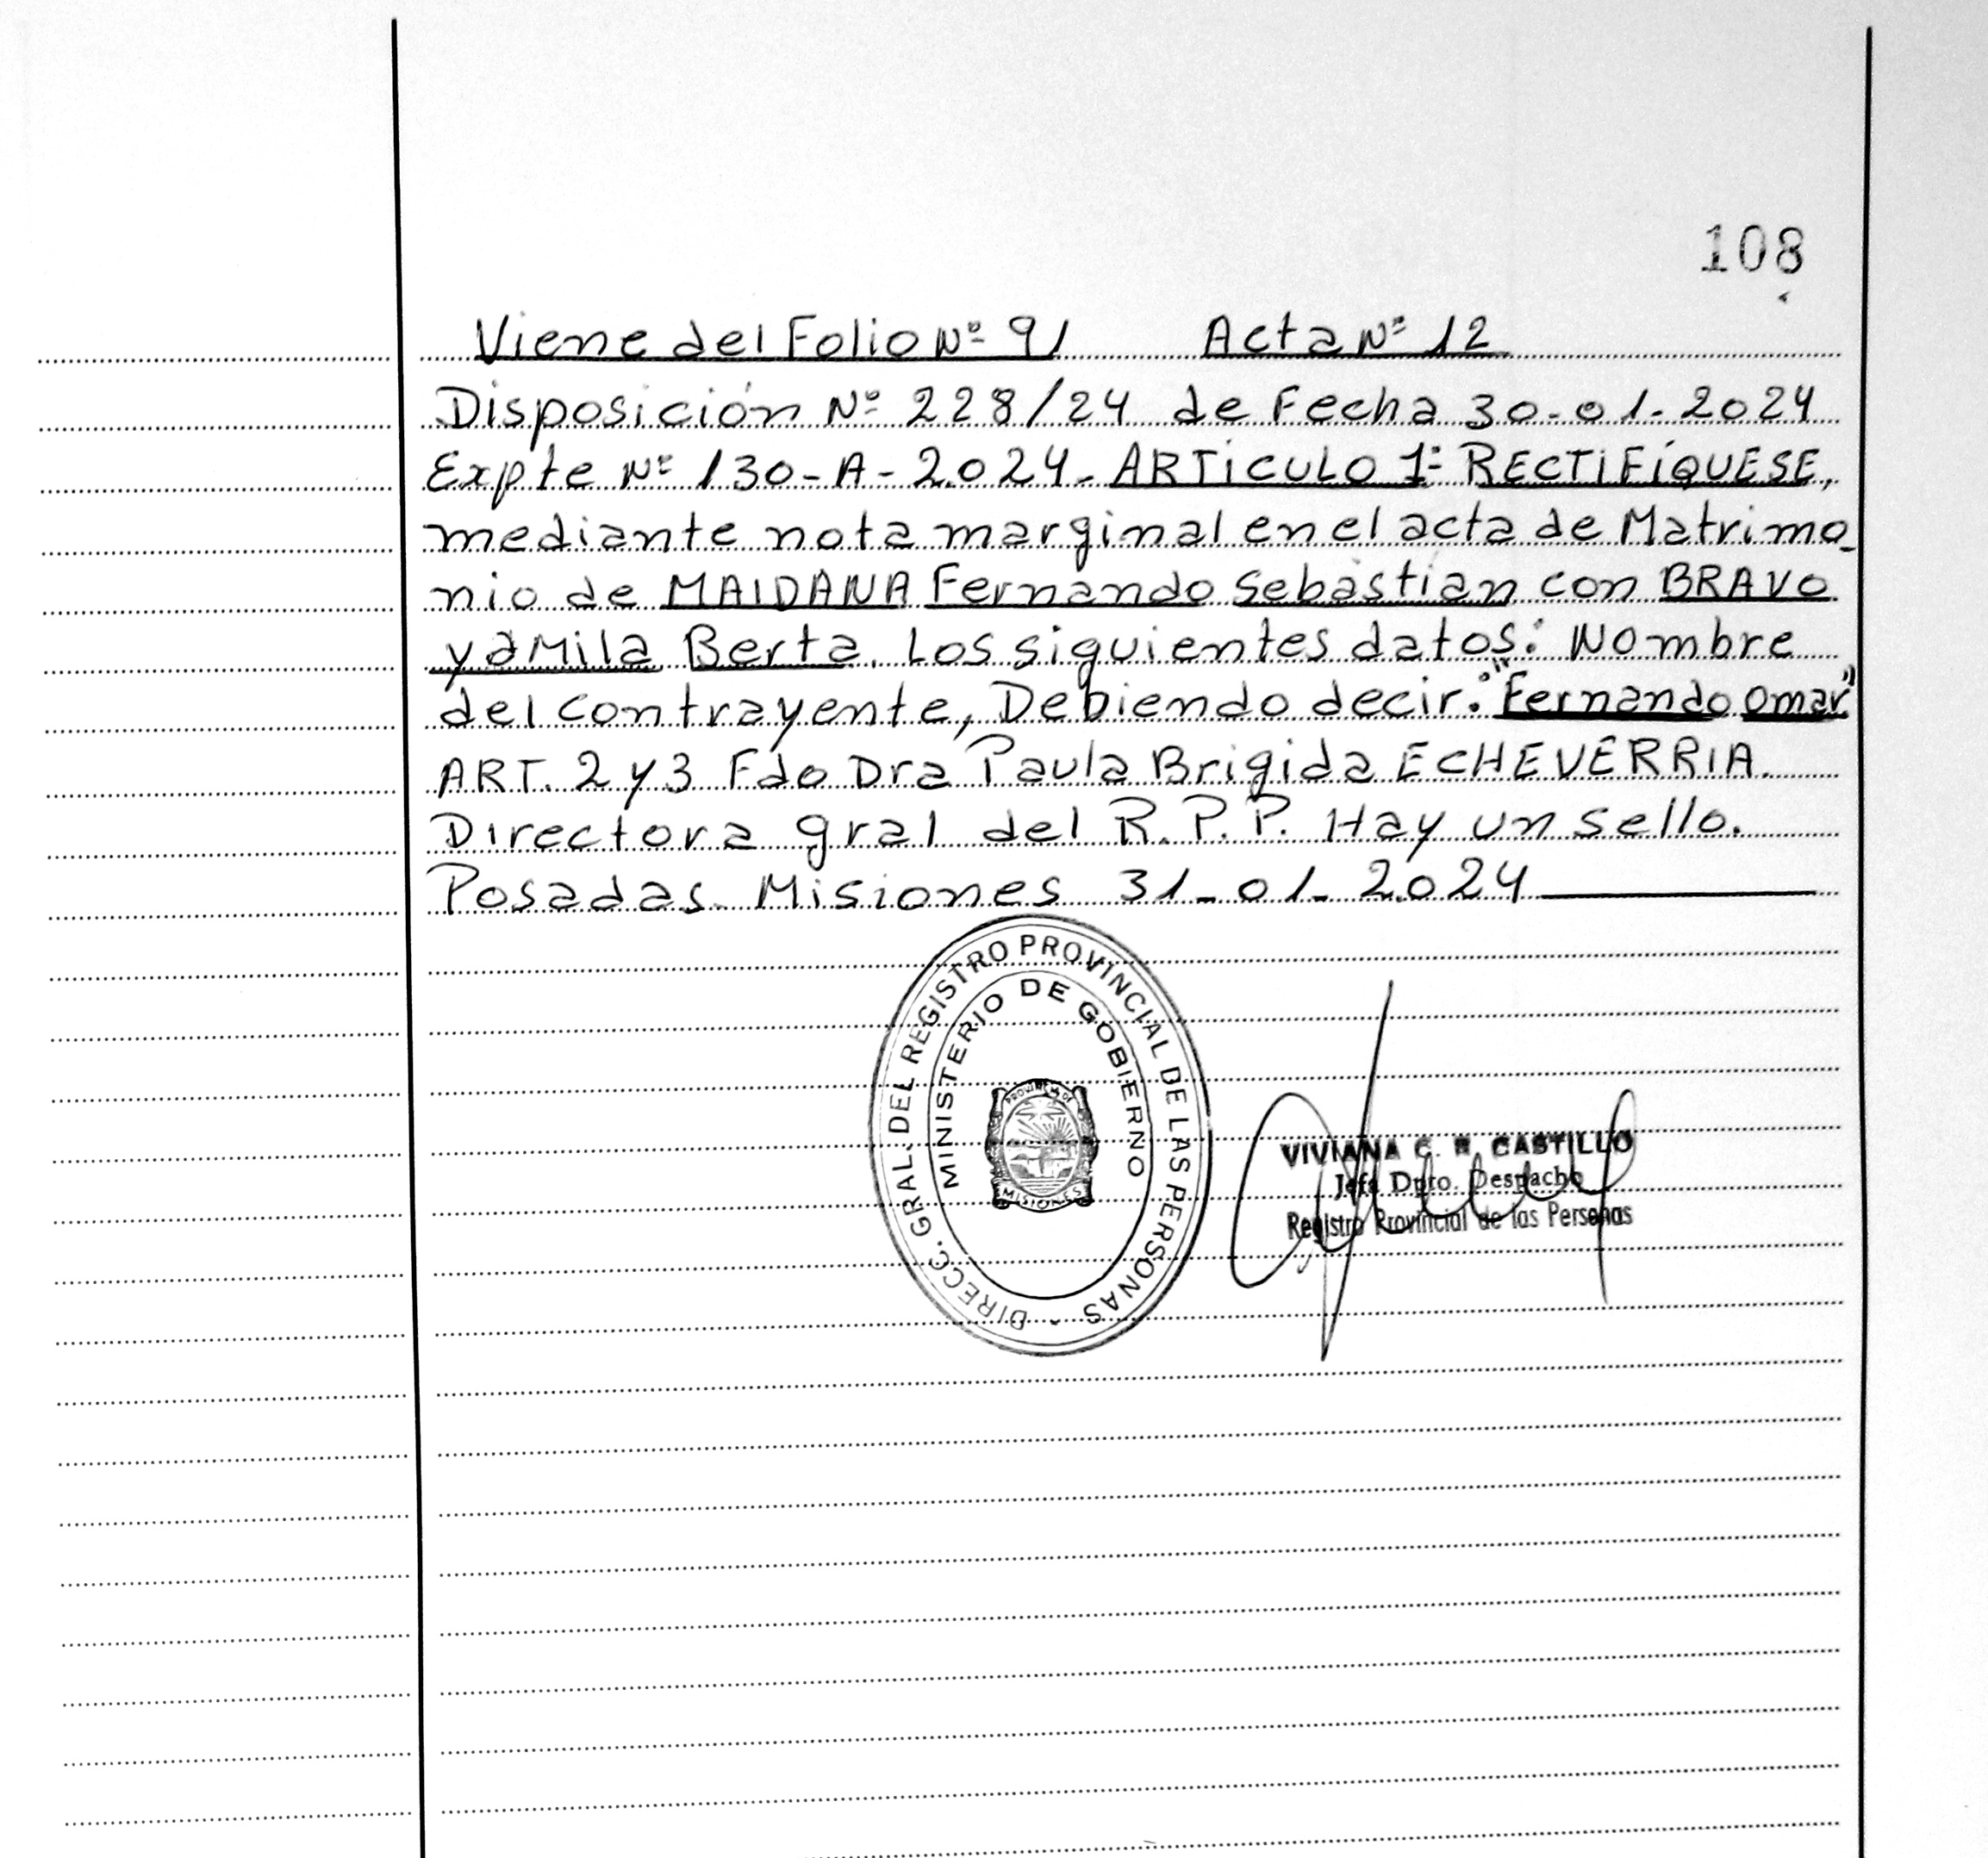 108
Viene del Folio Nº 91 Acta Nº 12
Disposición Nº 228/24 de Fecha 30-01-2024
Expte Nº 130-A-2024. ARTICULO 1º RECTIFÍQUESE,
mediante nota marginal en el acta de Matrimo_
nio de MAIDANA Fernando Sebastian con BRAVO
yamila Berta. Los siguientes datos: Nombre
del contrayente, Debiendo decir: "Fernando Omar"
ART. 2 y 3 Fdo Dra Paula Brigida ECHEVERRIA.
Directora gral del R.P.P. Hay un sello.
Posadas. Misiones 31-01-2024
DIRECC. GRAL. DEL REGISTRO PROVINCIAL DE LAS PERSONAS -
MINISTERIO DE GOBIERNO
PROVINCIA DE
MISIONES
VIVIANA C. R. CASTILLO
Jefa Dpto. Despacho
Registro Provincial de las Personas